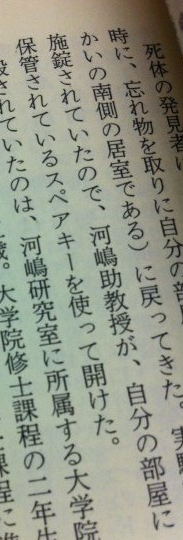 死体の発見者
時に、忘れ物を取りに自分の部
かいの南側の居室である）に戻ってきた。実
施錠されていたので、河嶋助教授が、自分の部屋に
保管されているスペアキーを使って開けた。
されていたのは、河嶋研究室に所属する大学院
大学院修士課程の二年生